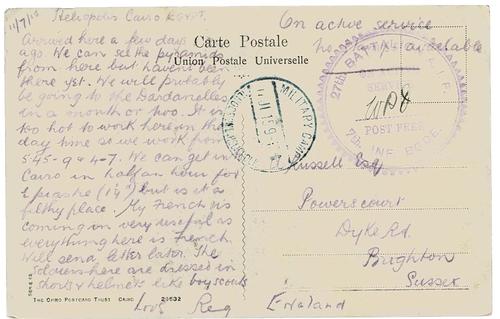 11/7/15 Heliopolis Cairo Egypt.
Arrived here a few days
ago. We can see the pyramids
from here but haven't been
there yet. We will probably
be going to the Dardanelles
in a month or two. It is
too hot to work here in the
day time so we work from
5.45-9 & 4-7. We can get in
Cairo in half an hour for
piastre but is a
filthy place. My French is
coming in very useful as
everything here is French.
Will send letter later. The
soldiers here are dressed in
shorts & helmets like boy scouts
Love Reg
Carte Postale
Union Postale Universelle
On active service
no stamps available
27th BATTALION A.I.F.
7th INF. BDE.
POST FREE
MILITARY CAMP
Russell Esq
Powerscourt
Dyke Rd.
Brighton
Sussex
England
THE CAIRO POSTCARD TRUST CAIRO 29632